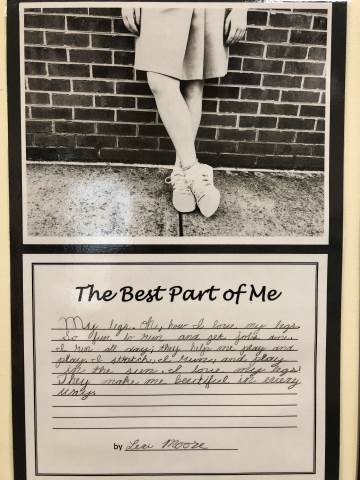 The Best Part of Me
My legs. Oh, how I love my legs
So fun to run and get jobs done.
I run all day; they help me play and
play. I stretch, I run, and play
in the sun. I love my legs!
They make me beutiful in every
way.
by Lexi Moore